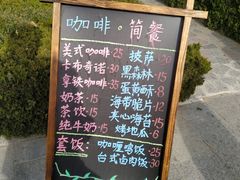 咖啡·简餐
美式咖啡·25
卡布奇诺·30
拿铁咖啡·35
奶茶·15
茶饮·15
纯牛奶·15
披萨·20
黑森林·15
蛋黄酥·8
海苔脆片·12
夹心海苔·15
烤地瓜·6
套饭:
咖喱鸡饭·25
台式卤肉饭·30